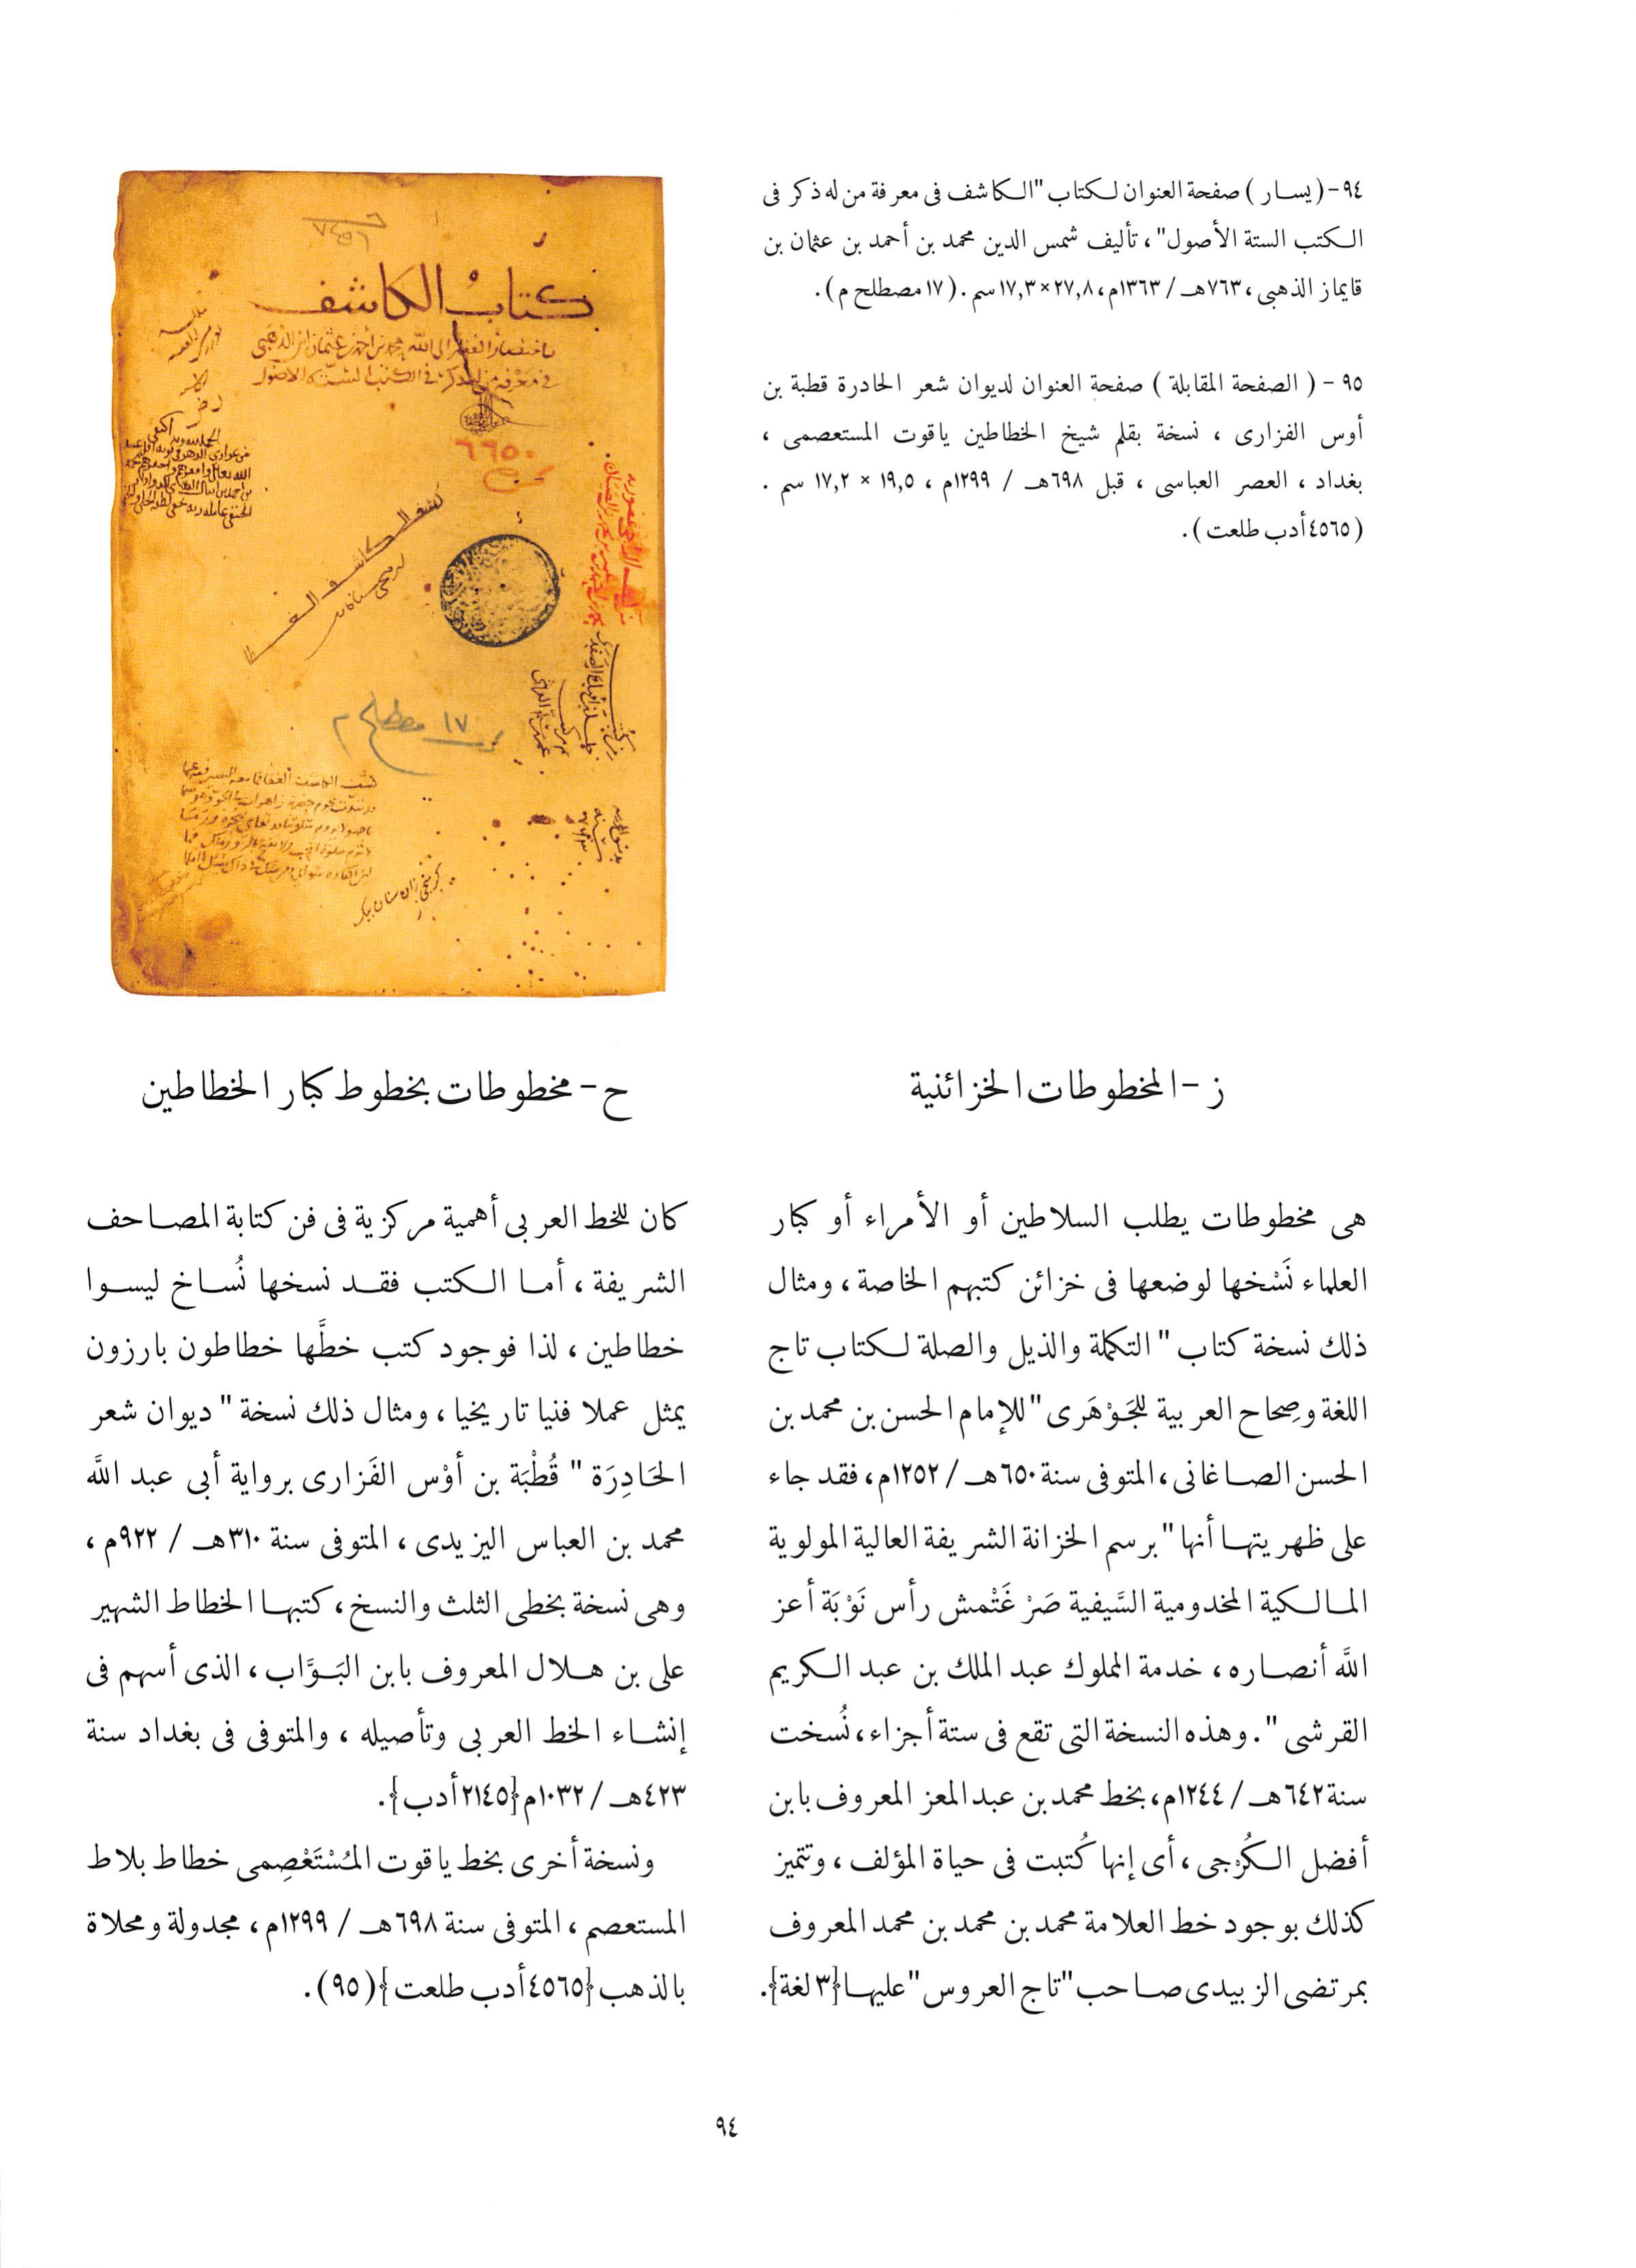 ٩٤-(يسار) صفحة العنوان لكتاب "الكاشف فى معرفة من له ذكر فى
الكتب الستة الأصول"، تأليف شمس الدين محمد بن أحمد بن عثمان بن
قايماز الذهبى، ٧٦٣هـ / ١٣٦٣م، ٢٧,٨×١٧,٣ سم. (١٧ مصطلح م).
٩٥ - ( الصفحة المقابلة ) صفحة العنوان لديوان شعر الحادرة قطبة بن
أوس الفزارى ، نسخة بقلم شيخ الخطاطين ياقوت المستعصمى ،
بغداد ، العصر العباسى ، قبل ٦٩٨هـ / ١٢٩٩م ، ١٩,٥ × ١٧,٢ سم .
(٤٥٦٥ أدب طلعت).
كتاب الكاشف
فى معرفة من له ذكر فى الكتب الستة الأصول
٦٦٥٠
١٧ مصطلح م
ز - المخطوطات الخزائنية
هى مخطوطات يطلب السلاطين أو الأمراء أو كبار
العلماء نَسْخها لوضعها فى خزائن كتبهم الخاصة ، ومثال
ذلك نسخة كتاب " التكملة والذيل والصلة لكتاب تاج
اللغة وصِحاح العربية للجَوْهَرى " للإمام الحسن بن محمد بن
الحسن الصاغانى ، المتوفى سنة ٦٥٠هـ / ١٢٥٢م، فقد جاء
على ظهريتها أنها " برسم الخزانة الشريفة العالية المولوية
المالكية المخدومية السَّيفية صَرْ غَتْمش رأس نَوْبَة أعز
اللَّه أنصاره ، خدمة المملوك عبد الملك بن عبد الكريم
القرشى " . وهذه النسخة التى تقع فى ستة أجزاء، نُسخت
سنة ٦٤٢هـ / ١٢٤٤م، بخط محمد بن عبد المعز المعروف بابن
أفضل الكُرْجى ، أى إنها كُتبت فى حياة المؤلف ، وتتميز
كذلك بوجود خط العلامة محمد بن محمد بن محمد المعروف
بمرتضى الزبيدى صاحب "تاج العروس" عليها {٣ لغة}.
ح - مخطوطات بخطوط كبار الخطاطين
كان للخط العربى أهمية مركزية فى فن كتابة المصاحف
الشريفة ، أما الكتب فقد نسخها نُساخ ليسوا
خطاطين ، لذا فوجود كتب خطَّها خطاطون بارزون
يمثل عملا فنيا تاريخيا ، ومثال ذلك نسخة " ديوان شعر
الحَادِرَة " قُطْبَة بن أوْس الفَزارى برواية أبى عبد اللَّه
محمد بن العباس اليزيدى ، المتوفى سنة ٣١٠هـ / ٩٢٢م ،
وهى نسخة بخطى الثلث والنسخ ، كتبها الخطاط الشهير
على بن هلال المعروف بابن البَوَّاب ، الذى أسهم فى
إنشاء الخط العربى وتأصيله ، والمتوفى فى بغداد سنة
٤٢٣هـ / ١٠٣٢م {٢١٤٥ أدب}.
ونسخة أخرى بخط ياقوت المُسْتَعْصِمى خطاط بلاط
المستعصم ، المتوفى سنة ٦٩٨هـ / ١٢٩٩م ، مجدولة ومحلاة
بالذهب {٤٥٦٥ أدب طلعت} (٩٥).
٩٤